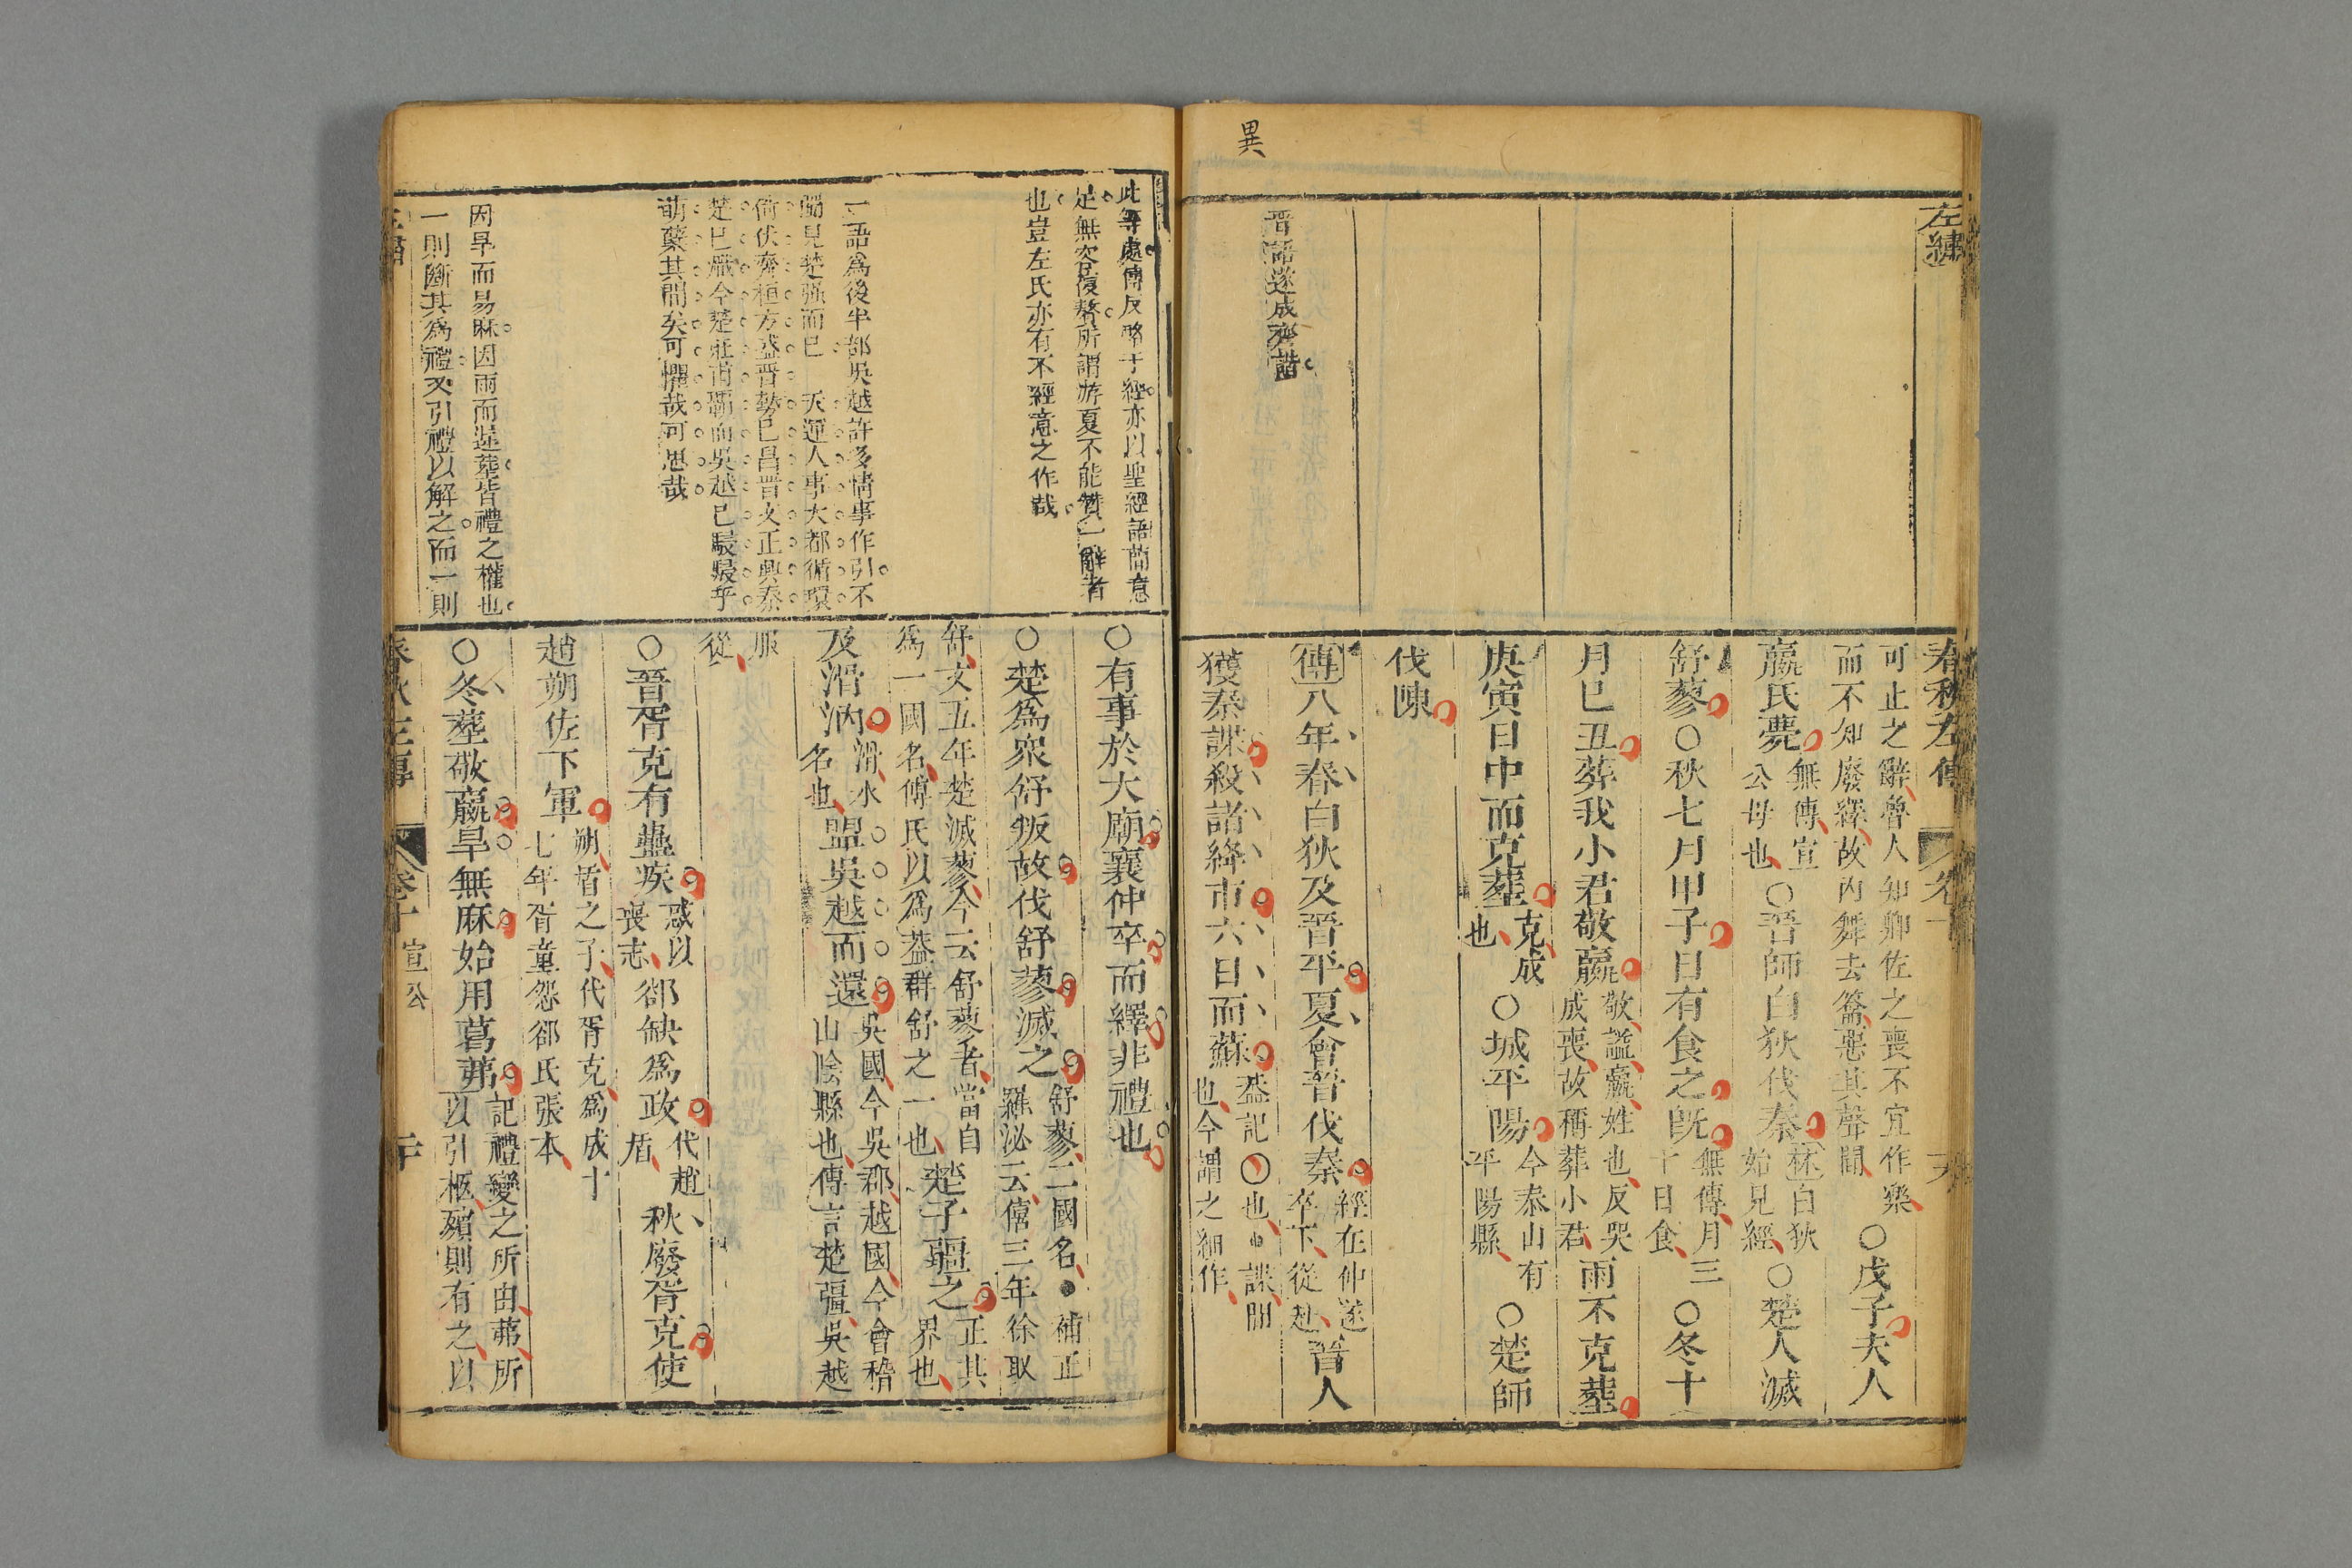 異
左繡
晋語遂成齊諧
春秋左傳
卷十
可止之辭魯人知卿佐之喪不宜作樂
而不知廢繹故內舞去籥惡其聲聞
○戊子夫人
嬴氏薨無傳宣公母也○晉師白狄伐秦林白狄始見經○楚人滅
舒蓼○秋七月甲子日有食之既無傳月三十日食○冬十
月己丑葬我小君敬嬴敬諡嬴姓也反哭成喪故稱葬小君雨不克葬
庚寅日中而克葬克成也○城平陽今泰山有平陽縣○楚師
伐陳
傳八年春白狄及晉平夏會晉伐秦經在仲遂卒下從赴晉人
獲秦諜殺諸絳市六日而蘇葢記○也諜間也今謂之細作
此等處傳反略于經亦以聖經語簡意
足無容復贅所謂游夏不能贊一辭者
也豈左氏亦有不經意之作哉
一語爲後半部吳越許多情事作引不
獨見楚强而已 天運人事大都循環
倚伏齊桓方盛晋勢已昌晋文正興秦
楚已熾今楚莊甫霸而吳越已駸駸乎
萌蘖其間矣可懼哉可思哉
因旱而易麻因雨而遲葬皆禮之權也
一則斷其爲禮又引禮以解之而一則
○有事於大廟襄仲卒而繹非禮也
○楚爲衆舒叛故伐舒蓼滅之舒蓼二國名●補正羅泌云僖三年徐取
舒文五年楚滅蓼今云舒蓼者當自
爲一國名傳氏以爲葢群舒之一也
楚子疆之正其界也
及滑汭滑水名也盟吳越而還吳國今吳郡越國今會稽山陰縣也傳言楚彊吳越
服從
○晉胥克有蠱疾惑以喪志郤缺爲政代趙盾秋廢胥克使
趙朔佐下軍朔盾之子代胥克爲成十七年胥童怨郤氏張本
○冬葬敬嬴旱無麻始用葛茀記禮變之所由茀所以引柩殯則有之以
春秋左傳
卷十 宣公